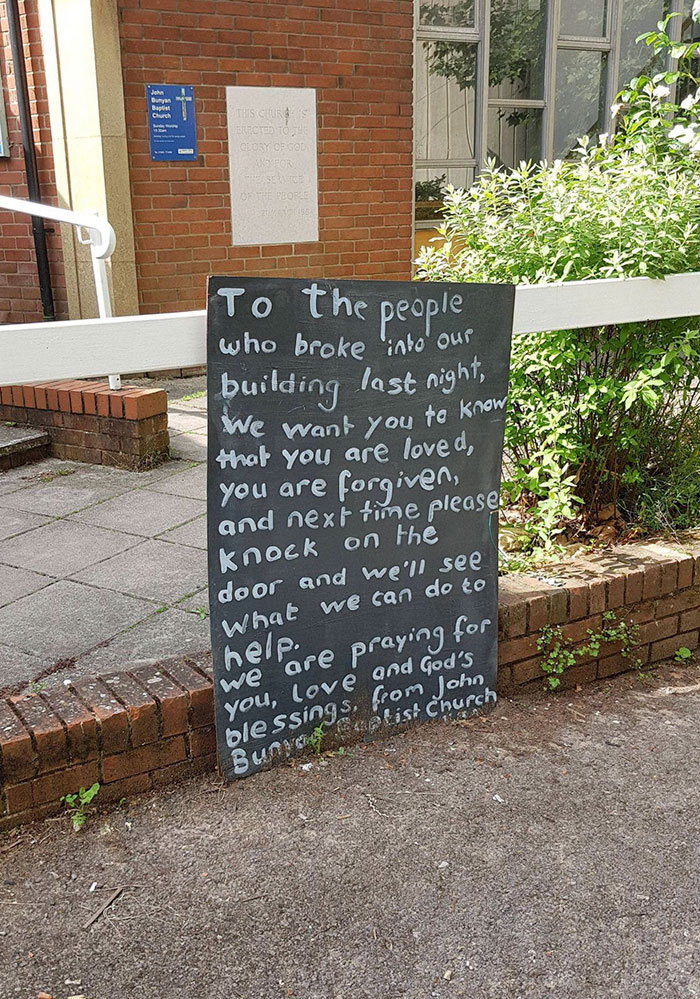 John
Bunyan
Baptist
Church
Sunday Worship
10:30am
THIS CHURCH IS
TO THE
OF GOD
FOR
THE SERVICE
OF THE PEOPLE
To the people
who broke into our
building last night,
We want you to know
that you are loved,
you are forgiven,
and next time please
knock on the
door and we'll see
what we can do to
help.
we are praying for
you, love and God's
blessings, from John
Bunyan Baptist Church